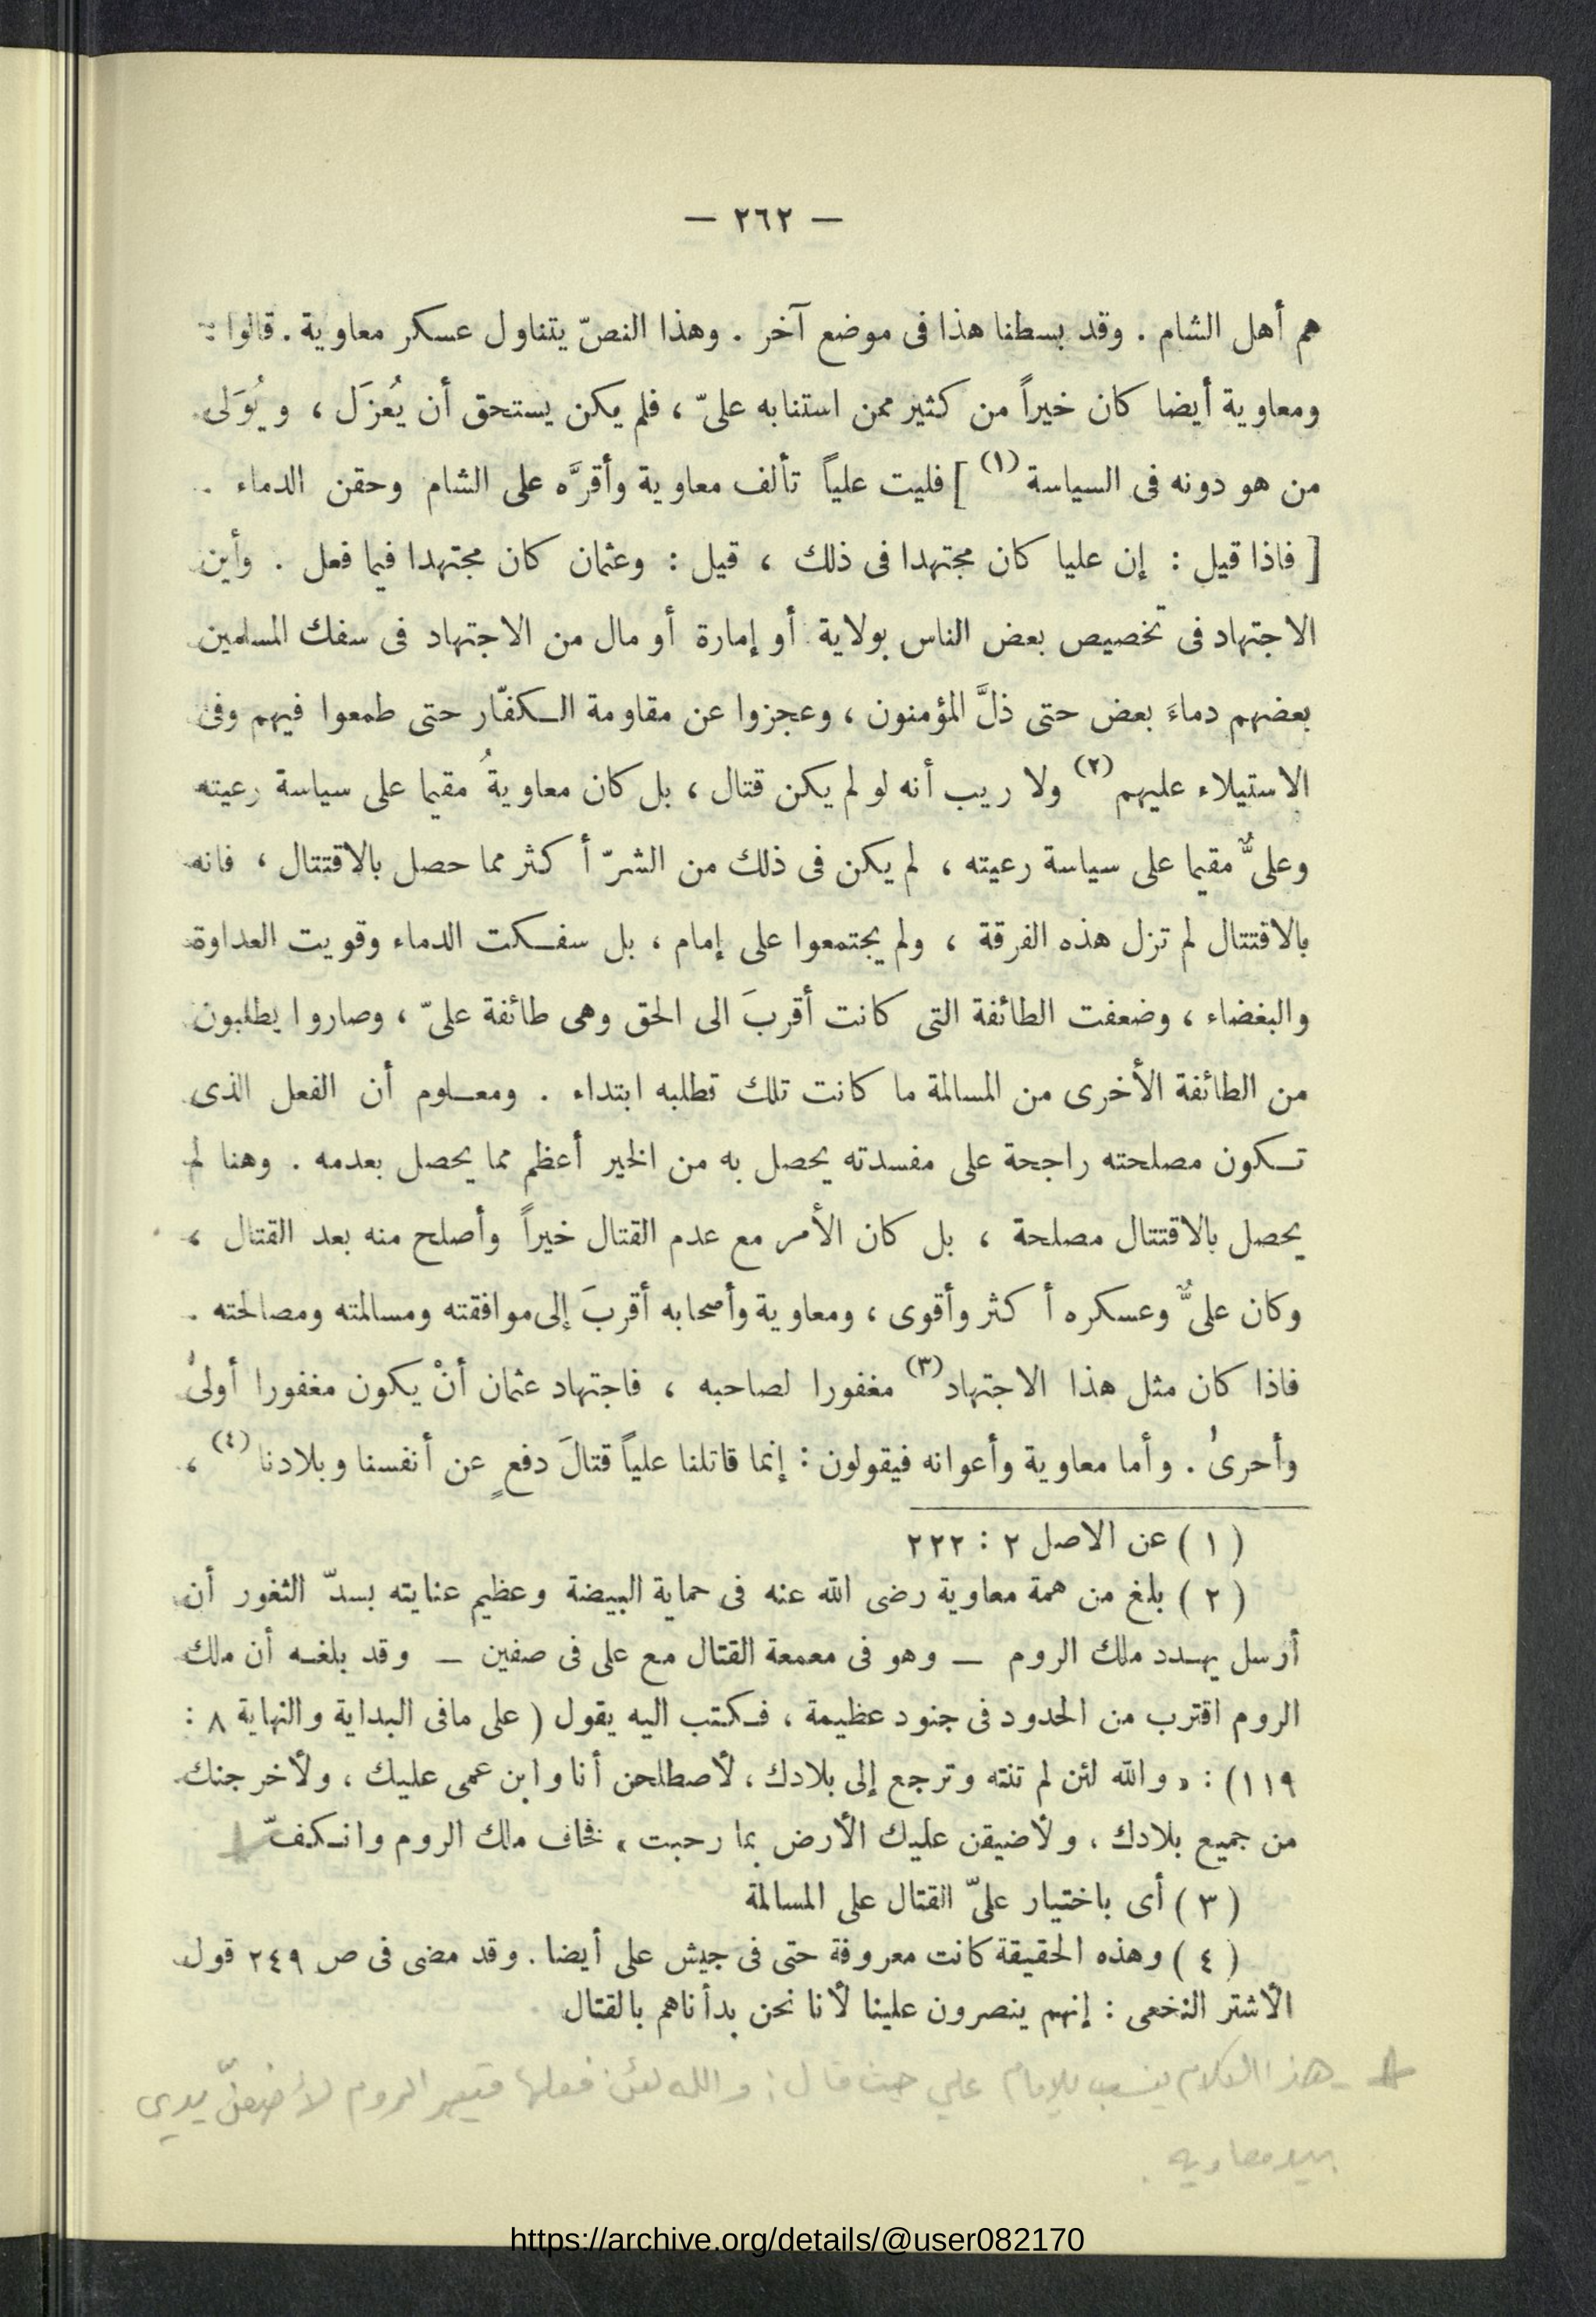 — ٢٦٢ —
هم أهل الشام . وقد بسطنا هذا فى موضع آخر . وهذا النصّ يتناول عسكر معاوية . قالوا :
ومعاوية أيضا كان خيراً من كثير ممن استنابه علىّ ، فلم يكن يستحق أن يُعزَل ، ويُوَلى
من هو دونه فى السياسة (١) ] فليت علياً تألف معاوية وأقرَّه على الشام وحقن الدماء .
[ فاذا قيل : إن عليا كان مجتهدا فى ذلك ، قيل : وعثمان كان مجتهدا فيما فعل . وأين
الاجتهاد فى تخصيص بعض الناس بولاية أو إمارة أو مال من الاجتهاد فى سفك المسلمين
بعضهم دماءَ بعض حتى ذلَّ المؤمنون ، وعجزوا عن مقاومة الكفّار حتى طمعوا فيهم وفى
الاستيلاء عليهم (٢) ولا ريب أنه لو لم يكن قتال ، بل كان معاويةُ مقيما على سياسة رعيته
وعلىٌّ مقيما على سياسة رعيته ، لم يكن فى ذلك من الشرّ أكثر مما حصل بالاقتتال ، فانه
بالاقتتال لم تزل هذه الفرقة ، ولم يجتمعوا على إمام ، بل سفكت الدماء وقويت العداوة
والبغضاء ، وضعفت الطائفة التى كانت أقربَ الى الحق وهى طائفة علىّ ، وصاروا يطلبون
من الطائفة الأخرى من المسالمة ما كانت تلك تطلبه ابتداء . ومعلوم أن الفعل الذى
تكون مصلحته راجحة على مفسدته يحصل به من الخير أعظم مما يحصل بعدمه . وهنا لم
يحصل بالاقتتال مصلحة ، بل كان الأمر مع عدم القتال خيراً وأصلح منه بعد القتال ،
وكان علىٌّ وعسكره أكثر وأقوى ، ومعاوية وأصحابه أقربَ إلى موافقته ومسالمته ومصالحته .
فاذا كان مثل هذا الاجتهاد (٣) مغفورا لصاحبه ، فاجتهاد عثمان أنْ يكون مغفورا أولىٰ
وأحرىٰ . وأما معاوية وأعوانه فيقولون : إنما قاتلنا علياً قتالَ دفعٍ عن أنفسنا وبلادنا (٤) ،
( ١ ) عن الاصل ٢ : ٢٢٢
( ٢ ) بلغ من همة معاوية رضى الله عنه فى حماية البيضة وعظيم عنايته بسدّ الثغور أن
أرسل يهدد ملك الروم — وهو فى معمعة القتال مع على فى صفين — وقد بلغه أن ملك
الروم اقترب من الحدود فى جنود عظيمة ، فكتب اليه يقول ( على مافى البداية والنهاية ٨ :
١١٩ ) : « والله لئن لم تنته وترجع إلى بلادك ، لأصطلحن أنا وابن عمى عليك ، ولأخرجنك
من جميع بلادك ، ولأضيقن عليك الأرض بما رحبت » فخاف ملك الروم وانكفّ
( ٣ ) أى باختيار علىّ القتال على المسالمة
( ٤ ) وهذه الحقيقة كانت معروفة حتى فى جيش على أيضا . وقد مضى فى ص ٢٤٩ قول
الأشتر النخعى : إنهم ينصرون علينا لأنا نحن بدأناهم بالقتال
هذا الكلام ينسب للإمام علي حيث قال : والله لئن فعلها قيصر الروم لأضعنّ يدي
بيد معاويه .
https://archive.org/details/@user082170